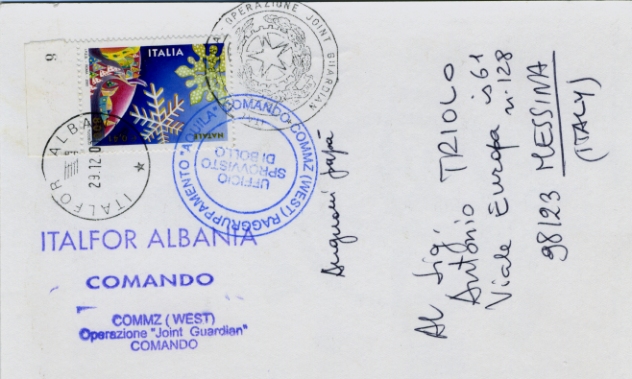 9
ITALIA
NATALE
OPERAZIONE JOINT GUARDIAN
ITALFOR ALBA
29.12.0
COMANDO COMMZ (WEST) RAGGRUPPAMENTO "AQUILA"
UFFICIO
SPROVVISTO
DI BOLLO
ITALFOR ALBANIA
COMANDO
COMMZ (WEST)
Operazione "Joint Guardian"
COMANDO
Auguroni papà
Al Sig.
Antonio TRIOLO
Viale Europa is 61
n. 128
98123 MESSINA
(ITALY)